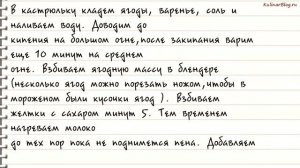 KulinarBlog.ru
В кастрюльку кладем ягоды, варенье, соль и
наливаем воду. Доводим до
кипения на большом огне,после закипания варим
еще 10 минут на среднем
огне. Взбиваем ягодную массу в блендере
(несколько ягод можно порезать ножом,чтобы в
мороженом были кусочки ягод ). Взбиваем
желтки с сахаром минут 5. Тем временем
нагреваем молоко
до тех пор пока не поднимется пена. Добавляем